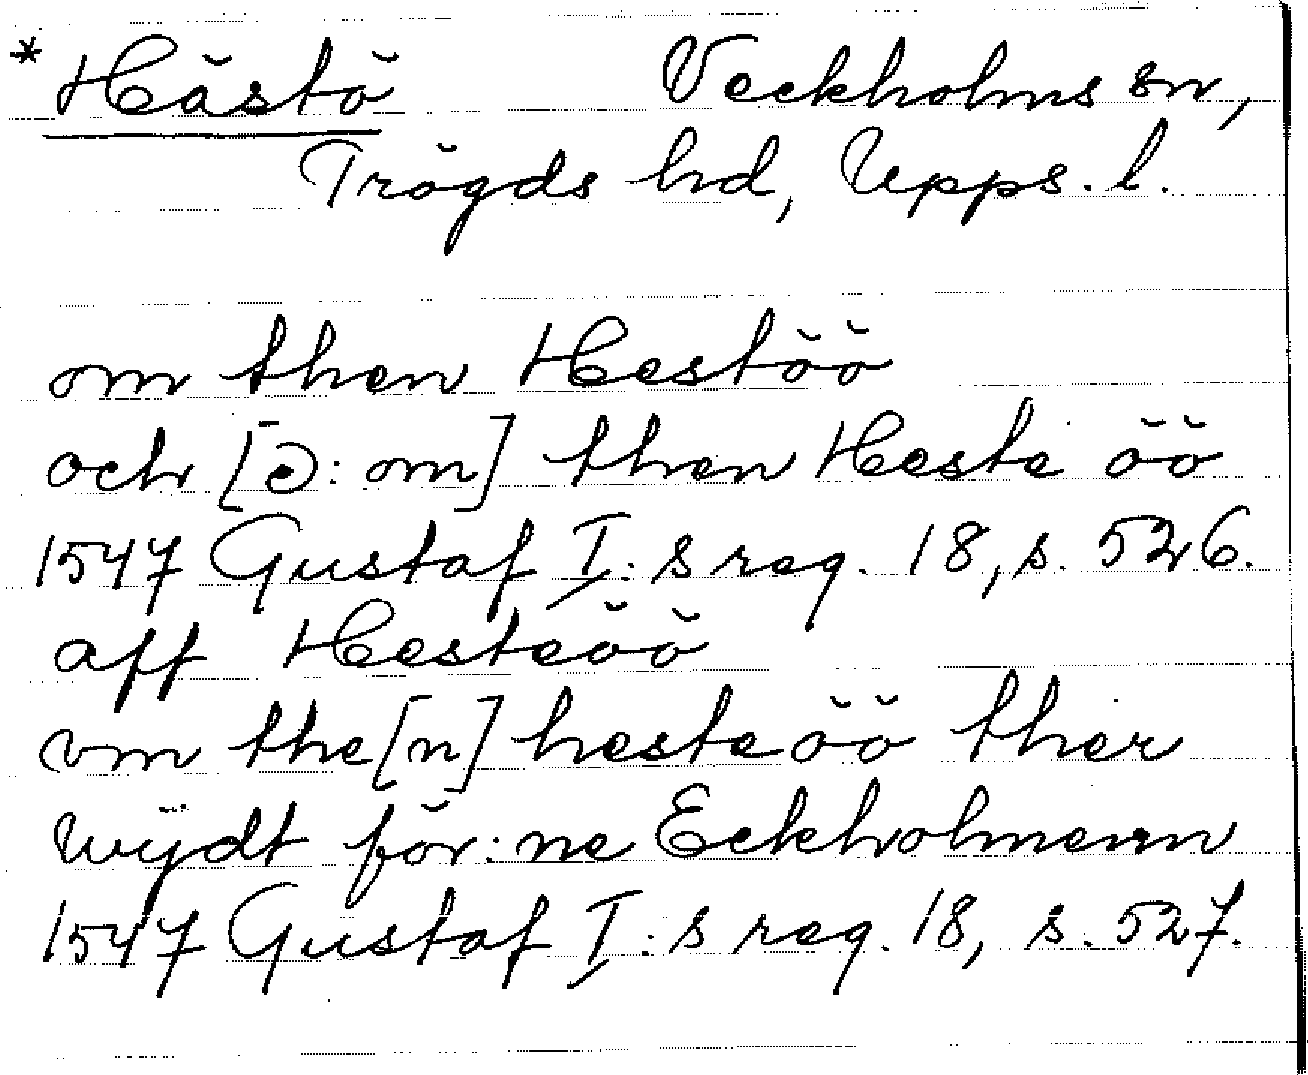 * Hästö Veckholms sn,
Trögds hd, Upps. l.
om then Hestöö
och [ə: om] then Heste öö
1547 Gustaf I:s reg. 18, s. 526.
aff Hesteöö
vm the[n] hesteöö ther
wÿdt för:ne Eckholmenn
1547 Gustaf I:s reg. 18, s. 527.